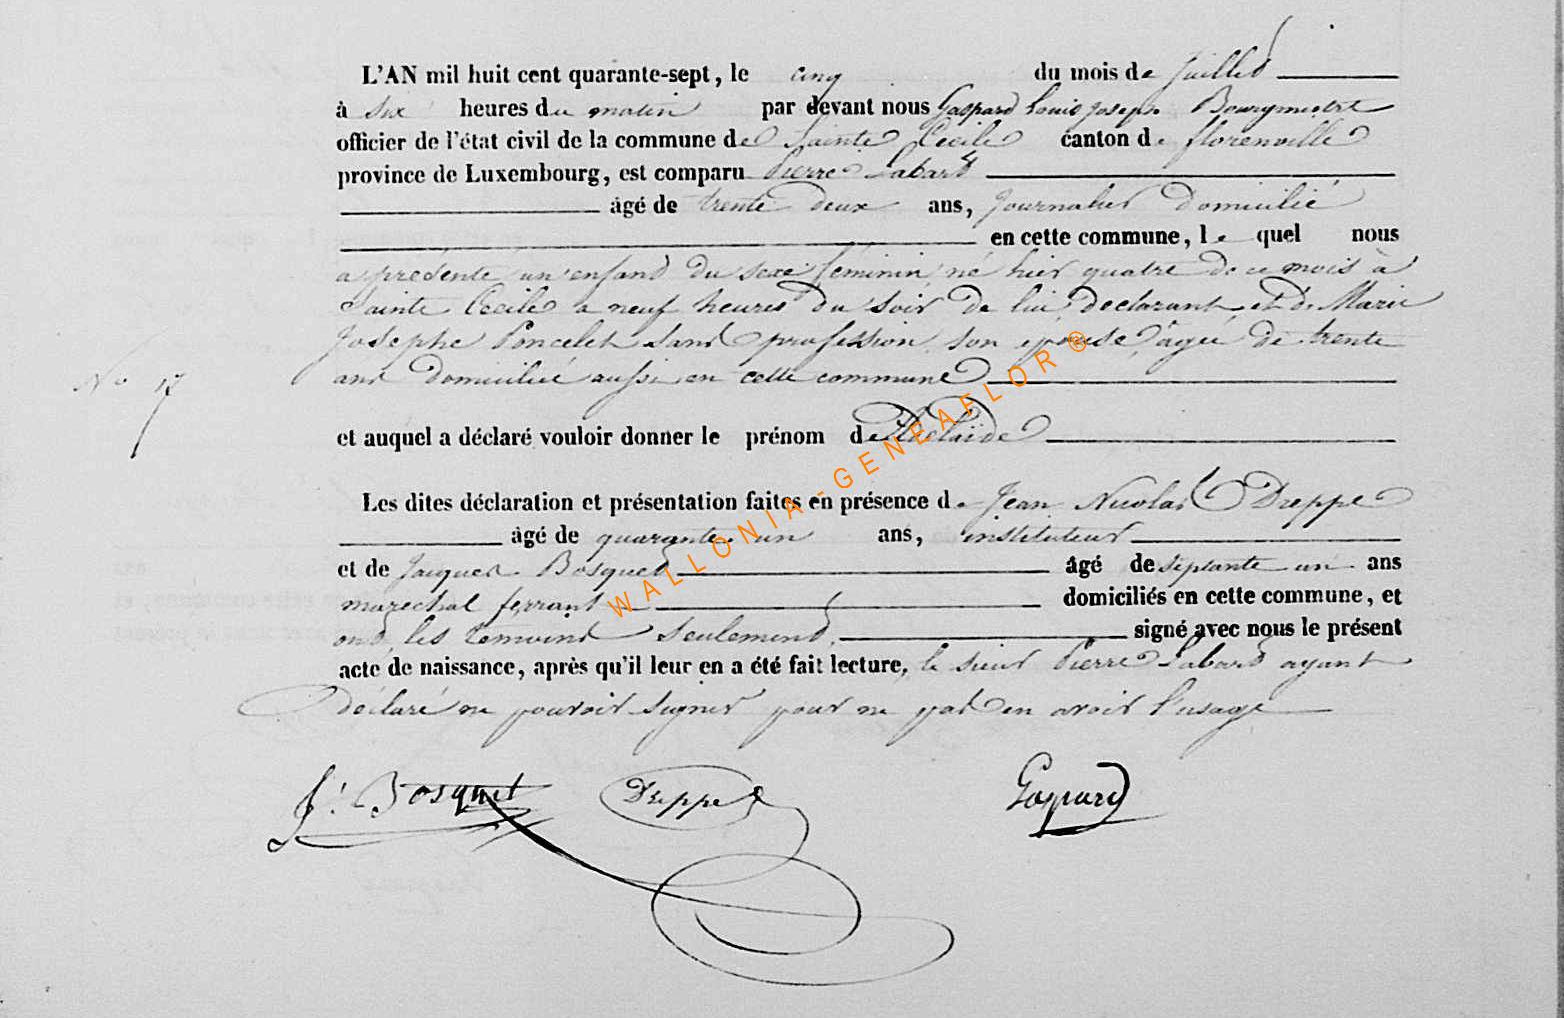 L'AN mil huit cent quarante-sept, le cinq du mois de Juillet
à six heures du matin par devant nous Gaspard Louis Joseph Bourgmestre
officier de l'état civil de la commune de Sainte Cécile canton de florenville
province de Luxembourg, est comparu Pierre Labard
âgé de trente deux ans, Journalier Domicilié
en cette commune, le quel nous
a presenté un enfant du sexe féminin, né hier quatre de ce mois à
Sainte Cécile a neuf heures Du Soir De lui declarant et De Marie
Josephe Poncelet sans profession son épouse, âgée de trente
ans Domiciliée aussi en cette commune
No 17
et auquel a déclaré vouloir donner le prénom de Adelaïde
Les dites déclaration et présentation faites en présence de Jean Nicolas Dreppe
âgé de quarante un ans, instituteur
et de Jacques Bosquet âgé de septante un ans
maréchal ferrant domiciliés en cette commune, et
ont les témoins seulement signé avec nous le présent
acte de naissance, après qu'il leur en a été fait lecture, le sieur Pierre Labard ayant
déclaré ne pouvoir signer pour ne pas en avoir l'usage
J. Bosquet Dreppe Gaspard
WALLONIA-GENEAFLOR ®